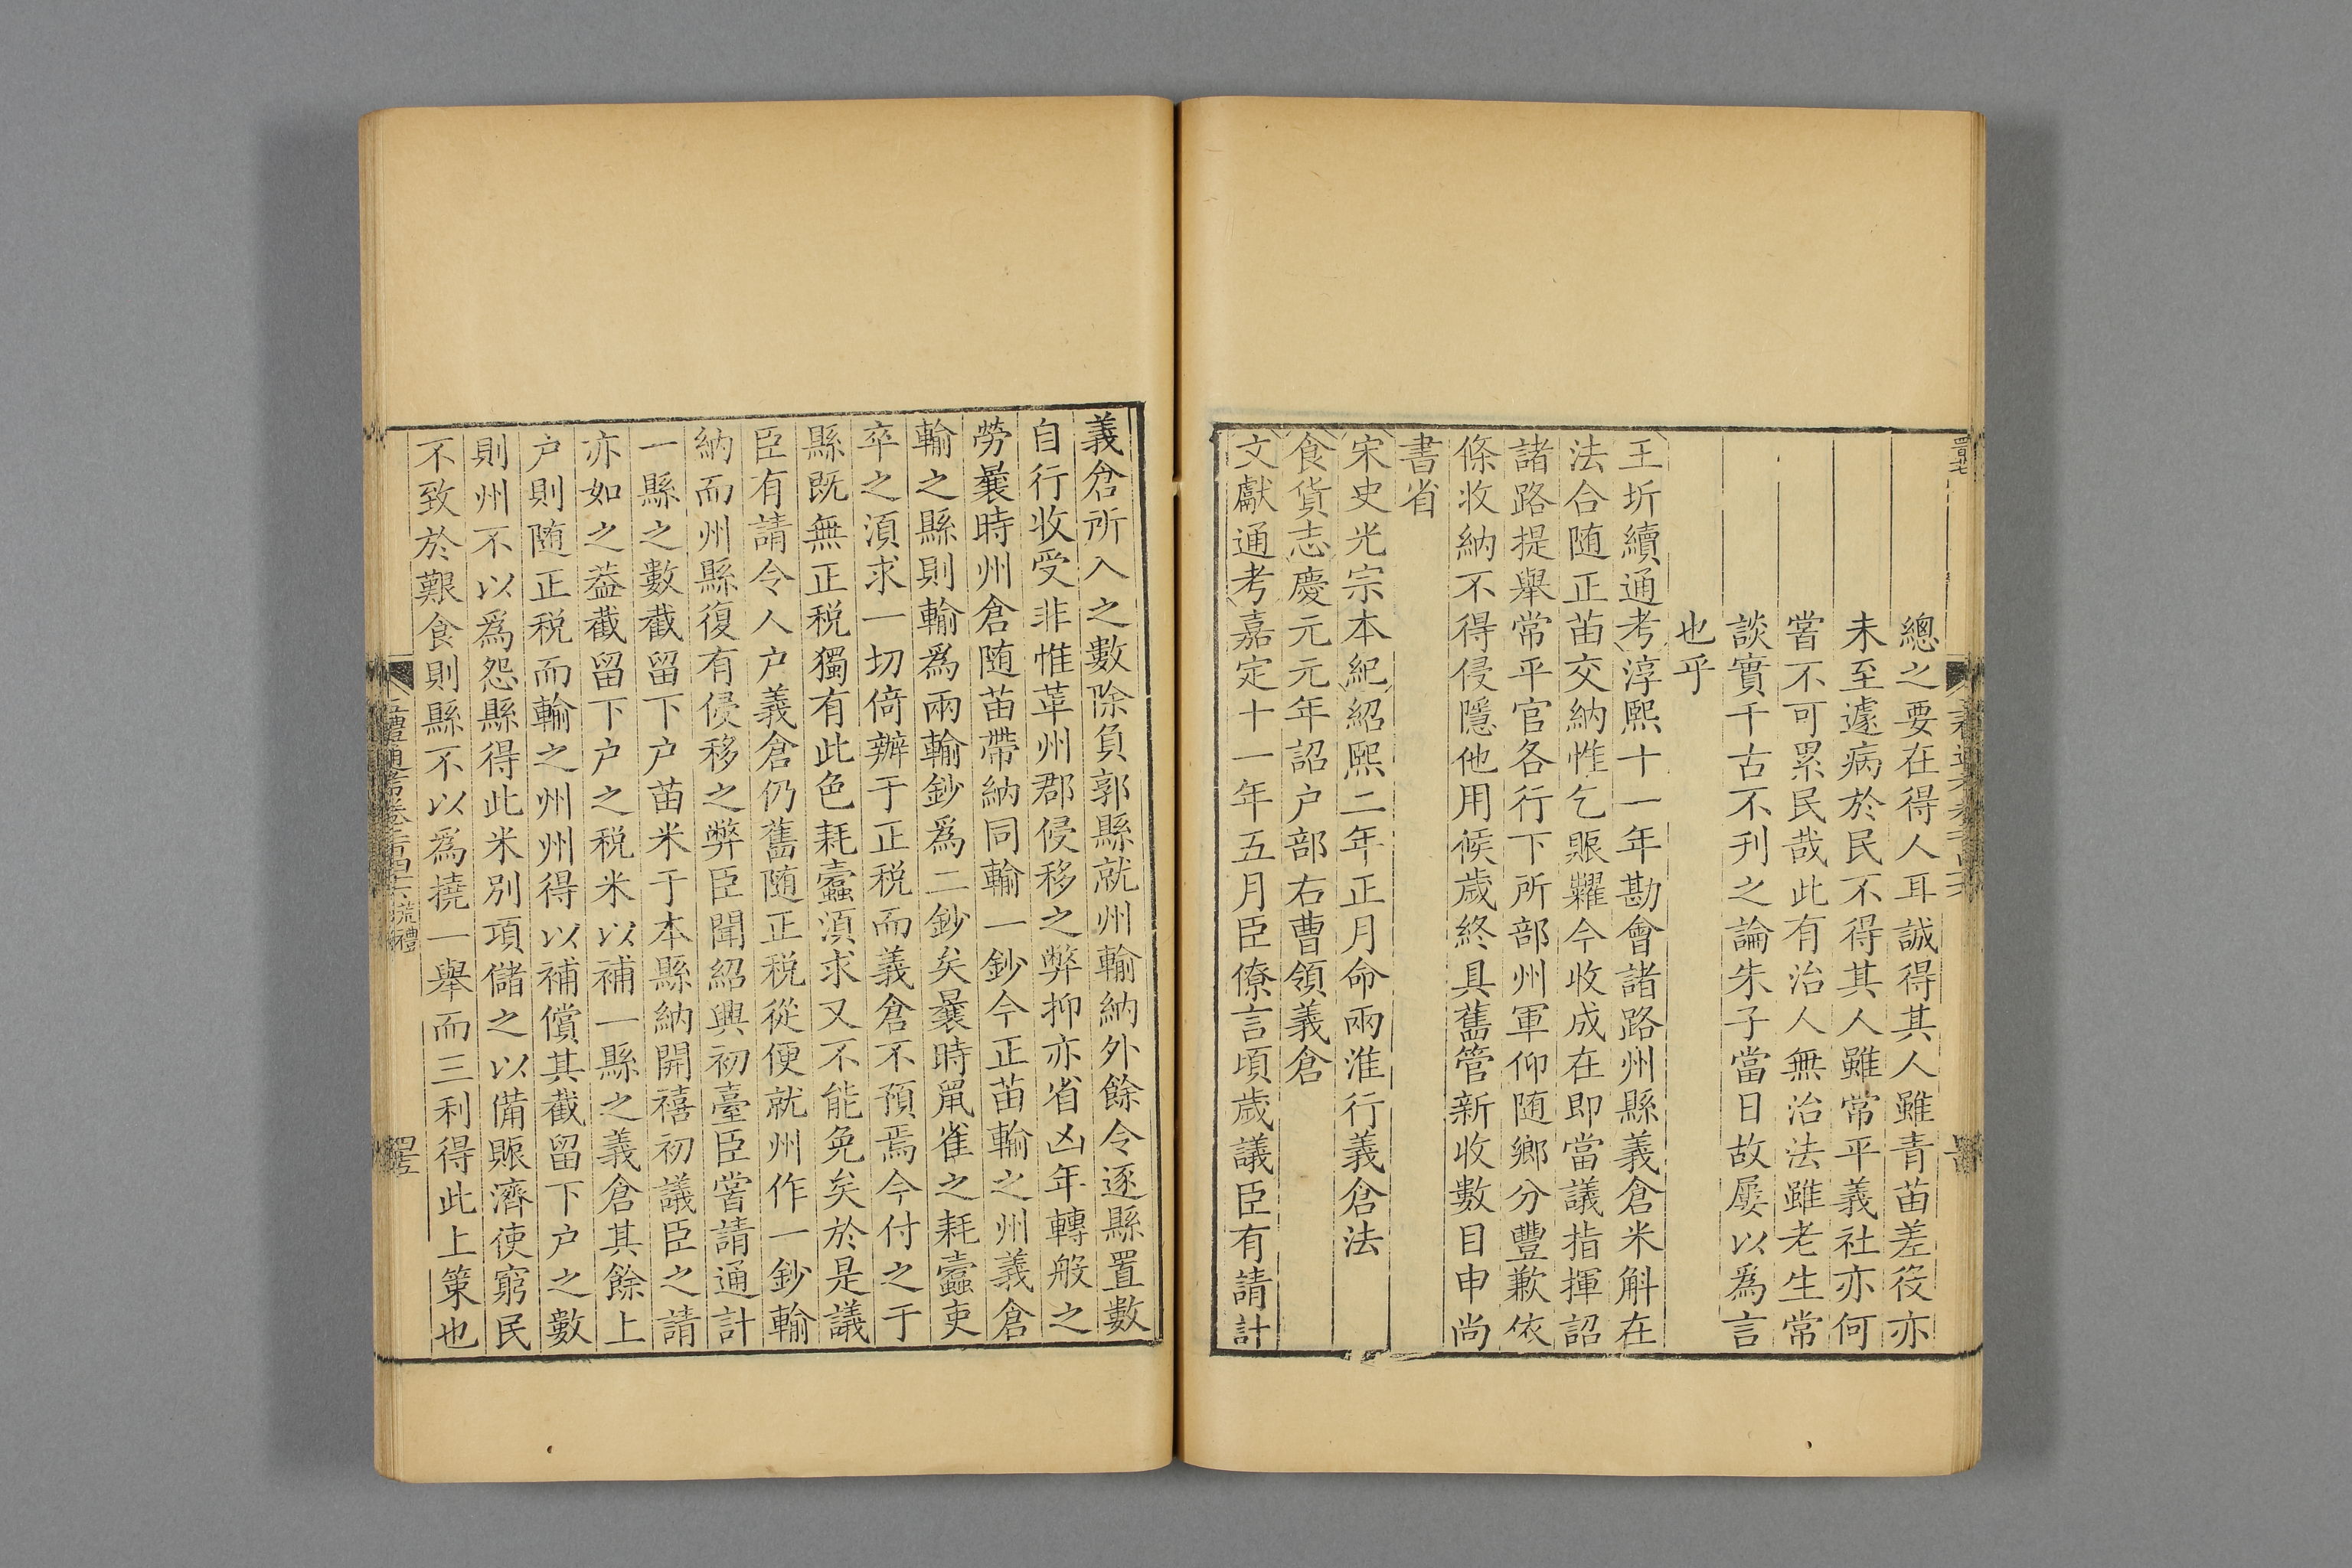 總之要在得人耳誠得其人雖青苗差役亦
未至遽病於民不得其人雖常平義社亦何
嘗不可累民哉此有治人無治法雖老生常
談實千古不刊之論朱子當日故屡以為言
也乎
王圻續通考淳熙十一年勘會諸路州縣義倉米斛在
法合随正苗交納惟乞賑糶今收成在即當議指揮詔
諸路提舉常平官各行下所部州軍仰随鄉分豐歉依
條收納不得侵隱他用候歲終具舊管新收數目申尚
書省
宋史光宗本紀紹熙二年正月命兩淮行義倉法
食貨志慶元元年詔户部右曹領義倉
文獻通考嘉定十一年五月臣僚言頃歲議臣有請計
義倉所入之數除負郭縣就州輸納外餘令逐縣置數
自行收受非惟革州郡侵移之弊抑亦省凶年轉般之
勞曩時州倉随苗帶納同輸一鈔今正苗輸之州義倉
輸之縣則輸爲兩輸鈔爲二鈔矣曩時鼠雀之耗蠹吏
卒之湏求一切倚辦于正税而義倉不預焉今付之于
縣既無正税獨有此色耗蠹湏求又不能免矣於是議
臣有請令人户義倉仍舊随正税從便就州作一鈔輸
納而州縣復有侵移之弊臣聞紹興初臺臣嘗請通計
一縣之數截留下户苗米于本縣納開禧初議臣之請
亦如之葢截留下户之税米以補一縣之義倉其餘上
户則随正税而輸之州州得以補償其截留下户之數
則州不以爲怨縣得此米別項儲之以備賑濟使窮民
不致於艱食則縣不以爲撓一舉而三利得此上策也
五禮通考卷二百四十六荒禮